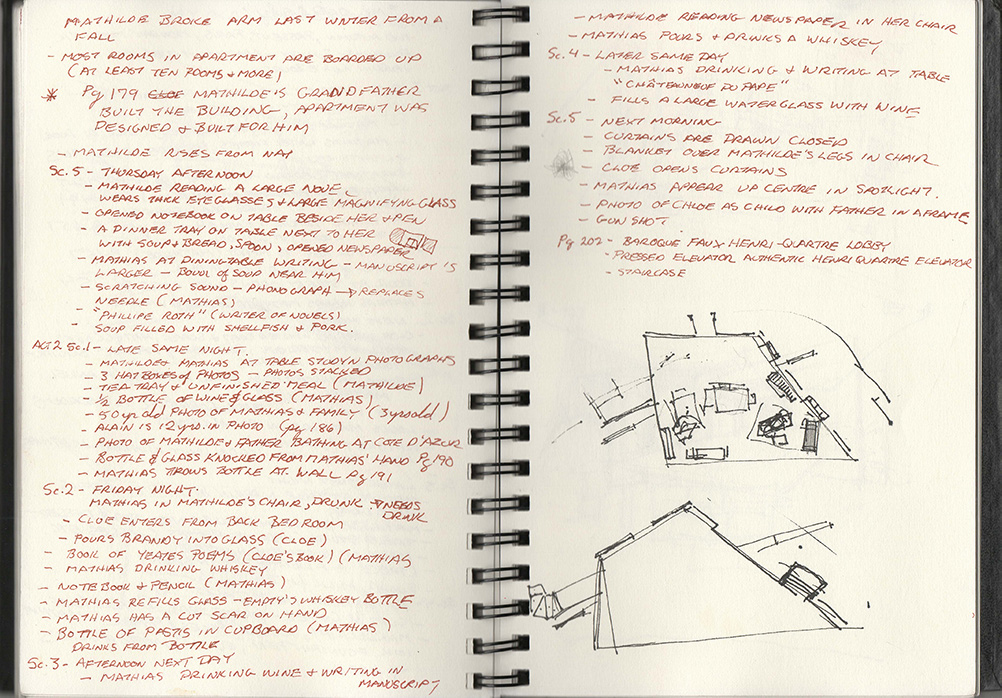 MATHILDE BROKE ARM LAST WINTER FROM A
FALL
- MOST ROOMS IN APARTMENT ARE BOARDED UP
(AT LEAST TEN ROOMS & MORE)
* Pg 179 MATHILDE'S GRANDFATHER
BUILT THE BUILDING, APARTMENT WAS
DESIGNED & BUILT FOR HIM
- MATHILDE RISES FROM NAP
Sc. 5 - THURSDAY AFTERNOON
- MATHILDE READING A LARGE NOVEL
WEARS THICK EYEGLASSES & LARGE MAGNIFYING GLASS
- OPENED NOTEBOOK ON TABLE BESIDE HER & PEN
- A DINNER TRAY ON TABLE NEXT TO HER
WITH SOUP & BREAD, SPOON, OPENED NEWSPAPER
- MATHIAS AT DINING TABLE WRITING - MANUSCRIPT IS
LARGER - BOWL OF SOUP NEAR HIM
- SCRATCHING SOUND - PHONOGRAPH → REPLACES
NEEDLE (MATHIAS)
- "PHILLIPE ROTH" (WRITER OF NOVELS)
- SOUP FILLED WITH SHELLFISH & PORK.
ACT 2 Sc. 1 - LATE SAME NIGHT.
- MATHILDE & MATHIAS AT TABLE STUDYN PHOTOGRAPHS
- 3 HAT BOXES of PHOTOS - PHOTOS STACKED
- TEA TRAY & UNFINISHED MEAL (MATHILDE)
- ½ BOTTLE OF WINE & GLASS (MATHIAS)
- 50 yr old PHOTO OF MATHIAS & FAMILY (3 yrs old)
- ALAIN IS 12 yrs. IN PHOTO (pg 186)
- PHOTO OF MATHILDE & FATHER BATHING AT COTE D'AZUR
- BOTTLE & GLASS KNOCKED FROM MATHIAS' HAND Pg 190
- MATHIAS TROWS BOTTLE AT WALL Pg 191
Sc. 2 - FRIDAY NIGHT.
MATHIAS IN MATHILDE'S CHAIR, DRUNK → NEEDS
DRINK
- CLOE ENTERS FROM BACK BEDROOM
- POURS BRANDY INTO GLASS (CLOE)
- BOOK OF YEATES POEMS (CLOE'S BOOK) (MATHIAS
- MATHIAS DRINKING WHISKEY
- NOTEBOOK & PENCIL (MATHIAS)
- MATHIAS REFILLS GLASS - EMPTY'S WHISKEY BOTTLE
- MATHIAS HAS A CUT SCAR ON HAND
- BOTTLE OF PASTIS IN CUPBOARD (MATHIAS)
DRINKS FROM BOTTLE
Sc. 3 - AFTERNOON NEXT DAY
- MATHIAS DRINKING WINE & WRITING IN
MANUSCRIPT
- MATHILDE READING NEWSPAPER IN HER CHAIR
- MATHIAS POURS & DRINKS A WHISKEY
Sc. 4 - LATER SAME DAY
- MATHIAS DRINKING & WRITING AT TABLE
"CHÂTEAUNEUF DU PAPE"
- FILLS A LARGE WATERGLASS WITH WINE
Sc. 5 - NEXT MORNING
- CURTAINS ARE DRAWN CLOSED
- BLANKET OVER MATHILDE'S LEGS IN CHAIR
- CLOE OPENS CURTAINS
- MATHIAS APPEAR UP CENTRE IN SPOTLIGHT.
- PHOTO OF CHLOE AS CHILD WITH FATHER IN A FRAME
- GUN SHOT.
Pg 202 - BAROQUE FAUX HENRI-QUARTRE LOBBY
- PRESSED ELEVATOR AUTHENTIC HENRI QUARTRE ELEVATOR
- STAIRCASE